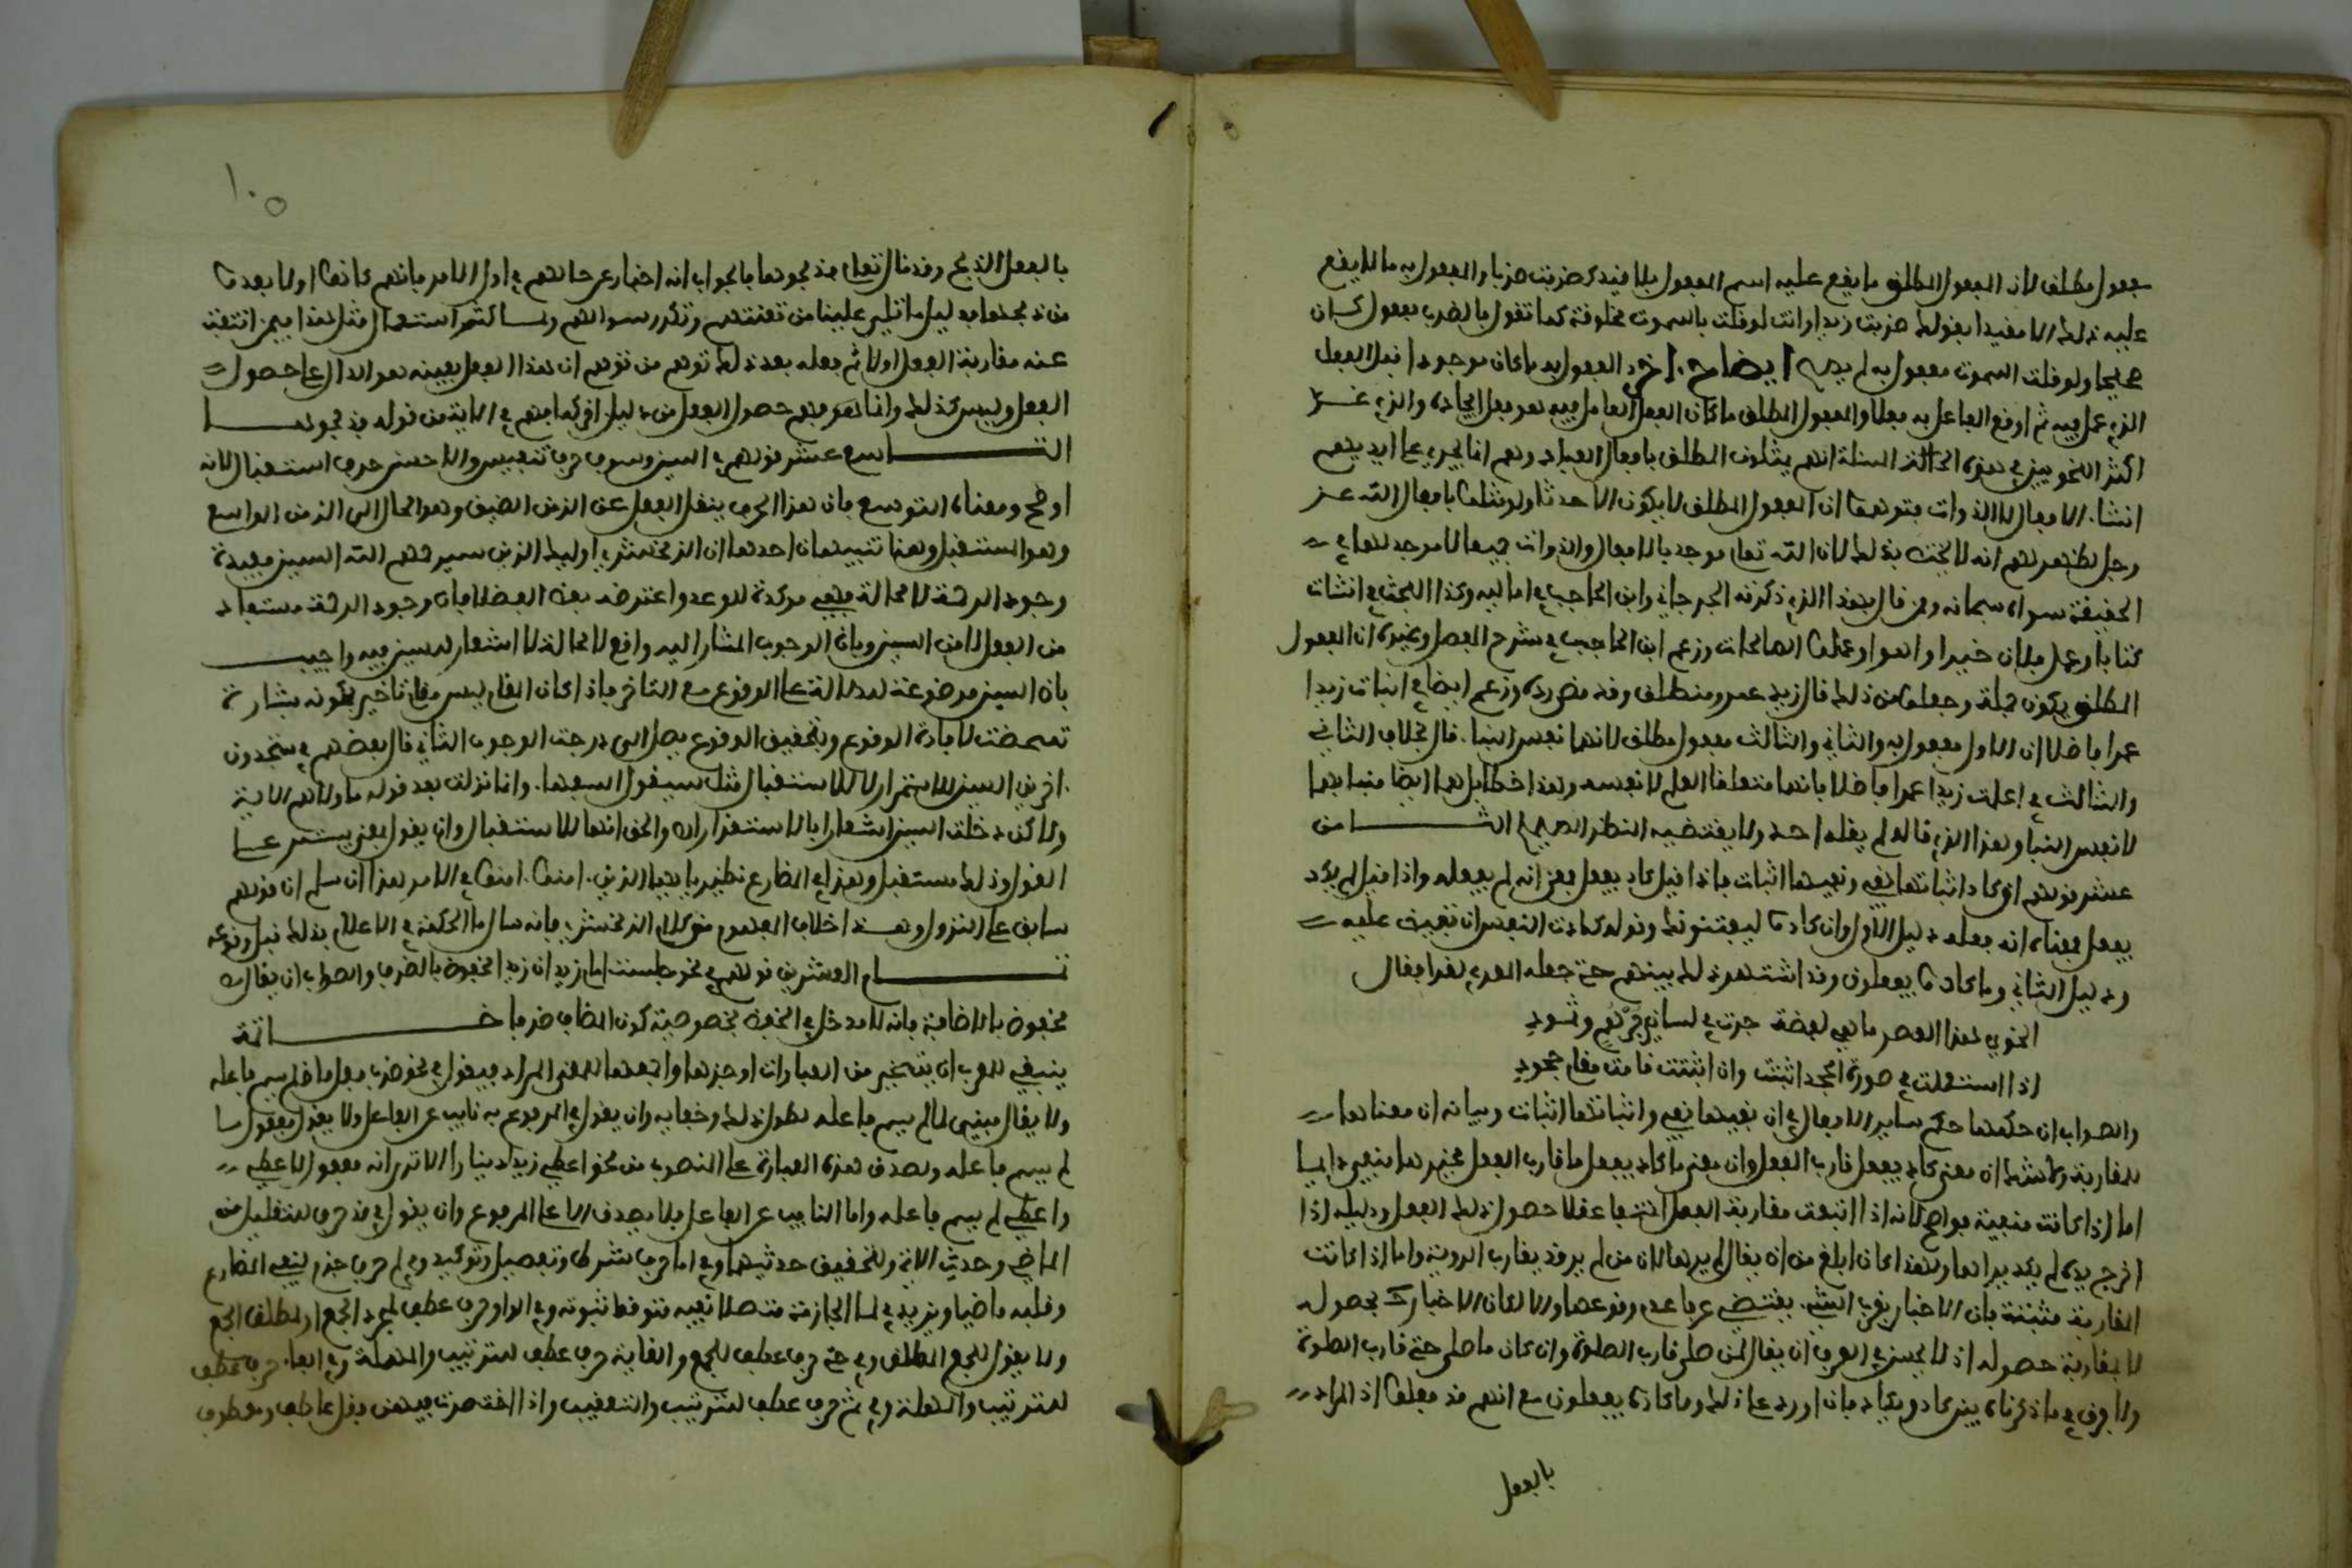 مفعول مطلق لان المفعول المطلق ما يقع عليه اسم المفعول بلا قيد كضربت ضربا والمفعول به ما لا يقع
عليه ذلك الا مقيدا بقولك ضربت زيدا وانت لو قلت بالسموت مخلوقة كما تقول بالضرب مفعول كان
صحيحا ولو قلت السموت مفعول به لم يصح ايضاح اخر المفعول به ما كان موجودا قبل الفعل
الذي عمل فيه ثم اوقع الفاعل به فعلا والمفعول المطلق ما كان الفعل العامل فيه هو فعل ايجاده والذي غر
اكثر النحويين في هذه المسئلة انهم يمثلون المطلق بافعال العباد وهم انما يجري على ايديهم
انشاء الافعال لا الذوات فتوهموا ان المفعول المطلق لا يكون الا حدثا ولو مثلوا بافعال الله عز
وجل لظهر لهم انه لا يختص بذلك لان الله تعلى موجد بالافعال والذوات جميعا لا موجد لهما في
الحقيقة سواه سبحانه وممن قال بهذا الذي ذكرته الجرجاني وابن الحاجب في اماليه وكذا البحث في انشات
كتابا وعمل فلان خيرا وامنوا وعملوا الصالحات وزعم ابن الحاجب في شرح المفصل وغيره ان المفعول
المطلق يكون جملة وجعل من ذلك قال زيد عمرو منطلق وقد مضى رده وزعم ايضا في انبات زيدا
عمرا فاضلا ان الاول مفعول به والثاني والثالث مفعول مطلق لانهما نفس النبا قال بخلاف الثاني
والثالث في اعلمت زيدا عمرا فاضلا فانهما متعلقا العلم لا نفسه وهذا خطا بل هما ايضا منبا بهما
لا نفس النبا وهذا الذي قاله لم يقله احد ولا يقتضيه النظر الصحيح الثامن
عشر قولهم في كاد اثباتها نفي ونفيها اثبات فاذا قيل كاد يفعل فمعناه انه لم يفعله واذا قيل لم يكد
يفعل فمعناه انه فعله دليل الاول وان كادوا ليفتنونك وقوله كادت النفس ان تفيض عليه
ودليل الثاني وما كادوا يفعلون وقد اشتهر ذلك بينهم حتى جعله المعري لغزا فقال
انحوي هذا العصر ما هي لفظة جرت في لساني جرهم وثمود
اذا استعملت في صورة الجحد اثبتت وان اثبتت قامت مقام جحود
والصواب ان حكمها حكم ساير الافعال في ان نفيها نفي واثباتها اثبات وبيانه ان معناها
المقاربة ولا شك ان معنى كاد يفعل قارب الفعل وان معنى ما كاد يفعل ما قارب الفعل فخبرها منفي دايما
اما اذا كانت منفية فواضح لانه اذا انتفت مقاربة الفعل انتفى عقلا حصول ذلك الفعل ودليله اذا
اخرج يده لم يكد يراها ولهذا كان ابلغ من ان يقال لم يرها لان من لم ير قد يقارب الروية واما اذا كانت
المقاربة مثبتة فان الاخبار بقرب الشيء يقتضي عرفا عدم وقوعه والا لكان الاخبار بحصوله
لا بمقاربة حصوله اذ لا يحسن في العرف ان يقال لمن صلى قارب الصلوة وان كان ما صلى حتى قارب الصلوة
ولا فرق في ما ذكرناه بين كاد ويكاد فان اورد على ذلك وما كادوا يفعلون مع انهم قد فعلوا اذ المراد
بالفعل
١٠٥
بالفعل الذبح وقد قال تعلى فذبحوها فالجواب انه اخبار عن حالهم في اول الامر فانهم كانوا اولا بعدا
من ذبحها بدليل ما تلي علينا من تعنتهم وتكرر سوالهم ولما كثر استعمال مثل هذا فيمن انتفت
عنه مقاربة الفعل اولا ثم فعله بعد ذلك توهم من توهم ان هذا الفعل بعينه هو الدال على حصول
الفعل وليس كذلك وانما فهم حصول الفعل من دليل اخر كما فهم في الاية من قوله فذبحوها
التاسع عشر قولهم في السين وسوف حرف تنفيس والاحسن حرف استقبال لانه
اوضح ومعناه التوسيع فان هذا الحرف ينقل الفعل عن الزمن الضيق وهو الحال الى الزمن الواسع
وهو المستقبل وهنا تنبيهان احدهما ان الزمخشري اوليك الذين سيرحمهم الله السين مفيدة
وجود الرحمة لا محالة فهي موكدة للوعد واعترضه بعض الفضلا بان وجود الرحمة مستفاد
من الفعل لا من السين وبان الوجوب المشار اليه واقع لا محالة لا اشعار للسين فيه واجيب
بان السين موضوعة للدلالة على الوقوع مع التاخر فاذا كان المقام ليس مقام تاخير لكونه بشارة
تمحضت لافادة الوقوع وتحقيق الوقوع يصل الى درجة الوجوب الثاني قال بعضهم في ستجدون
اخرين السين للاستمرار لا للاستقبال مثل سيقول السفهاء وانما نزلت بعد قوله ما ولاهم الاية
ولاكن دخلت السين اشعارا بالاستقرار والحق انها للاستقبال وان يقول بمعنى يستمر على
القول وذلك مستقبل وهذا في المضارع نظير يا ايها الذين امنوا امنوا في الامر هذا ان سلم ان قولهم
سابق على النزول وهذا خلاف المفهوم من كلام الزمخشري فانه سال ما الحكمة في الاعلام بذلك قبل وقوعه
تمام العشرين قولهم في نحو جلست امام زيد ان زيدا مخفوض بالظرف والصواب ان يقال
مخفوض بالاضافة فانه لا مدخل في الخفض لخصوصية كون المضاف ظرفا خاتمة
ينبغي للمعرب ان يتخير من العبارات اوجزها واجمعها للمعنى المراد فيقول في نحو ضرب فعل ماض لم يسم فاعله
ولا يقال مبني لما لم يسم فاعله لطول ذلك وخفايه وان يقول في المرفوع به نايب عن الفاعل ولا يقول مفعول ما
لم يسم فاعله وتصدق هذه العبارة على المنصوب من نحو اعطي زيد دينارا الا ترى انه مفعول لاعطي
واعطي لم يسم فاعله واما النايب عن الفاعل فلا يصدق الا على المرفوع وان يقول في قد حرف لتقليل زمن
الماضي وحدث الاتي ولتحقيق حدثيهما وفي اما حرف شرط وتفصيل وتوكيد وفي لم حرف جزم لنفي المضارع
وقلبه ماضيا ويزيد في لما الجازمة متصلا نفيه متوقعا ثبوته وفي الواو حرف عطف لمجرد الجمع او لمطلق الجمع
ولا يقول للجمع المطلق وفي حتى حرف عطف للجمع والغاية حرف عطف للترتيب والمهلة وفي الفاء حرف عطف
للترتيب والمهلة وفي ثم حرف عطف للترتيب والتعقيب واذا اختصرت فيهن فقل عاطف ومعطوف